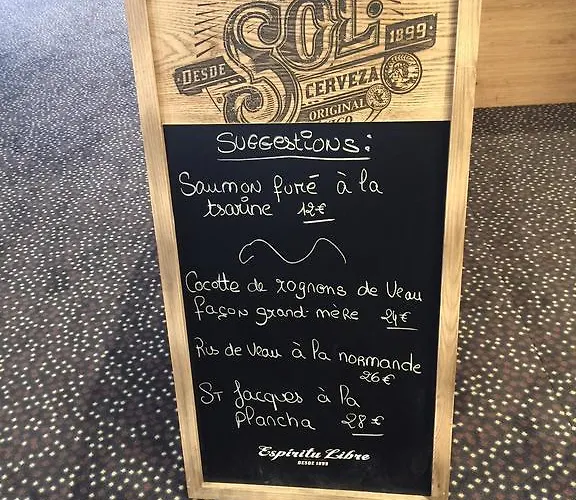 SOL
DESDE 1899
CERVEZA
ORIGINAL
Suggestions:
Saumon fumé à la
tsarine 12€
Cocotte de rognons de Veau
façon grand-mère 24€
Ris de veau à la normande
26€
St Jacques à la
plancha 28€
Espíritu Libre
DESDE 1899